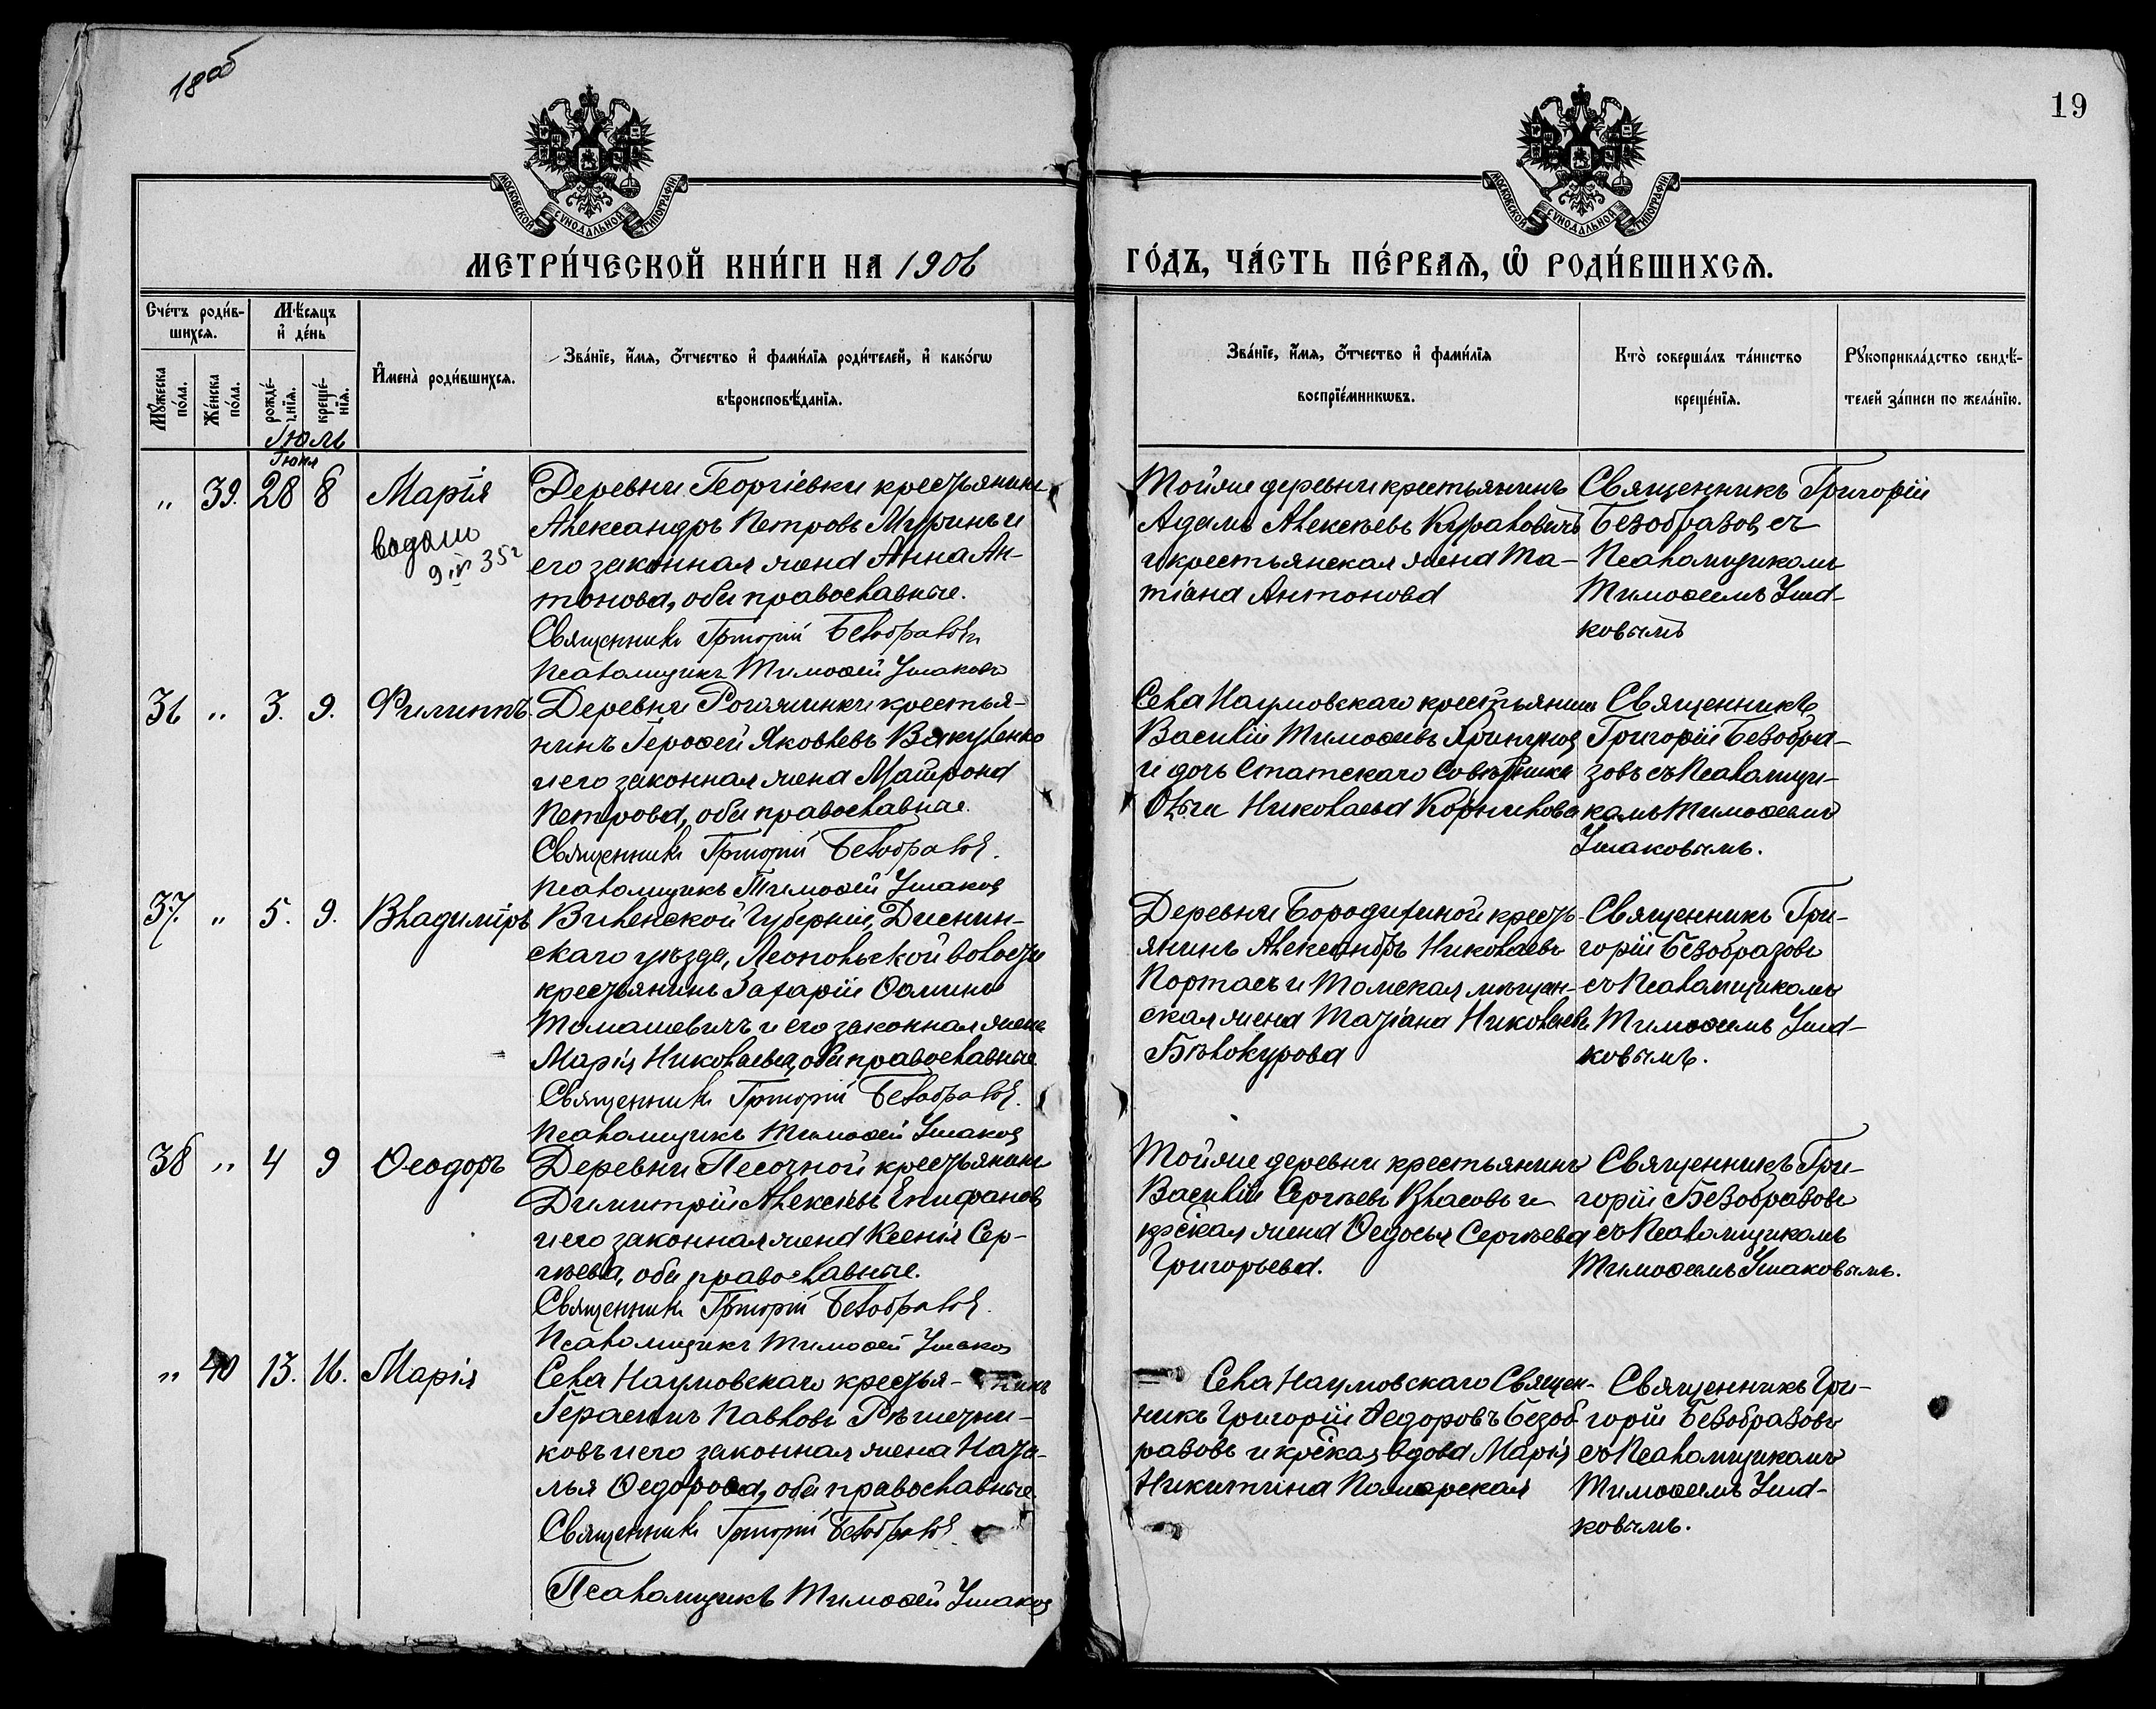 18 об
19
МОСКОВСКОЙ СѴНОДАЛЬНОЙ ТИПОГРАФІИ
МОСКОВСКОЙ СѴНОДАЛЬНОЙ ТИПОГРАФІИ
МЕТРИ́ЧЕСКОЙ КНИ́ГИ НА 1906
ГО́ДЪ, ЧА́СТЬ ПЕ́РВАѦ, Ѽ РОДИ́ВШИХСѦ.
Сче́тъ роди́в-
шихсѧ.
Мѣ́сѧцъ
и҆ де́нь
Мꙋ́жеска
по́ла.
Же́нска
по́ла.
рожде́-
нїѧ.
креще́-
нїѧ.
И҆мена̀ роди́вшихсѧ.
Зва́нїе, и҆́мѧ, ѻ҆́тчество и҆ фами́лїѧ роди́телей, и҆ како́гѡ
вѣроисповѣ́данїѧ.
Зва́нїе, и҆́мѧ, ѻ҆́тчество и҆ фами́лїѧ
воспрїе́мникѡвъ.
Кто̀ соверша́лъ та́инство
креще́нїѧ.
Рꙋкоприкла́дство свидѣ́-
телей за́писи по жела́нїю.
Іюль
Іюня
„ 39. 28 8 Марія
9 IV 35 г
Деревни Георгіевки крестьянинъ
Александръ Петровъ Муринъ и
его законная жена Анна Ан-
тонова, оба православные.
Священникъ Григорій Безобразовъ
Псаломщикъ Тимоѳей Ушаковъ
Тойже деревни крестьянинъ
Адамъ Алексѣевъ
и крестьянская жена Та-
тіана Антонова
Священникъ Григорій
Безобразов съ
Псаломщикомъ
Тимоѳеемъ Уша-
ковымъ
36 „ 3. 9. Филиппъ
Деревни крестья-
нинъ Іероѳей Яковлевъ Вакуленко
и его законная жена Матрона
Петрова, оба православные.
Священникъ Григорій Безобразов.
Псаломщикъ Тимоѳей Ушаков
Села Наумовскаго крестьянинъ
Василій Тимоѳеевъ
и дочь Статскаго Совѣтника
Ольги Николаева Корнилова
Священникъ
Григорій Безобра-
зовъ съ Псаломщи-
комъ Тимоѳеемъ
Ушаковымъ.
37. „ 5. 9. Владиміръ
Виленской Губерніи, Диснин-
скаго уѣзда, Леонпольской волости
крестьянинъ Захарій Ѳоминъ
Томашевичъ и его законная жена
Марія Николаева, оба православные.
Священникъ Григорій Безобразов.
Псаломщикъ Тимоѳей Ушаков
Деревни Бородихиной кресть-
янинъ Александръ Николаевъ
Портасъ и Томская мѣщан-
ская жена Татіана Николаева
Бѣлокурова
Священникъ Гри-
горій Безобразовъ
съ Псаломщикомъ
Тимоѳеемъ Уша-
ковымъ.
38 „ 4 9 Ѳеодоръ
Деревни Песочной крестьянинъ
Димитрій Алексѣевъ Епифановъ
и его законная жена Ксенія Сер-
гѣева, оба православные.
Священникъ Григорій Безобразов.
Псаломщикъ Тимоѳей Ушаков
Тойже деревни крестьянинъ
Василій Сергѣевъ Власовъ и
крская жена Ѳедосья Сергѣева
Григорьева.
Священникъ Гри-
горій Безобразовъ
съ Псаломщикомъ
Тимоѳеемъ Ушаковымъ.
„ 40 13. 16. Марія
Села Наумовскаго крестья- нинъ
Герасимъ Павловъ Рѣшетни-
ковъ и его законная жена Ната-
лья Ѳедорова, оба православные
Священникъ Григорій Безобразов.
Псаломщикъ Тимоѳей Ушаков
Села Наумовскаго Священ-
никъ Григорій Ѳедоровъ Безоб-
разовъ и крская вдова Марія
Никитина Поморская
Священникъ Гри-
горій Безобразовъ
съ Псаломщикомъ
Тимоѳеемъ Уша-
ковымъ.